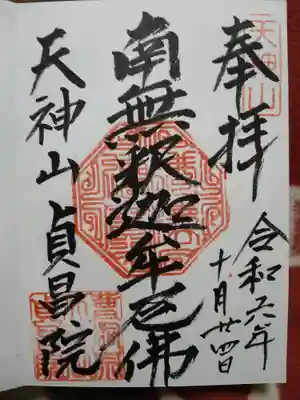 天神山
奉拝
令和六年
十月廿四日
南無釈迦牟尼佛
天神山貞昌院